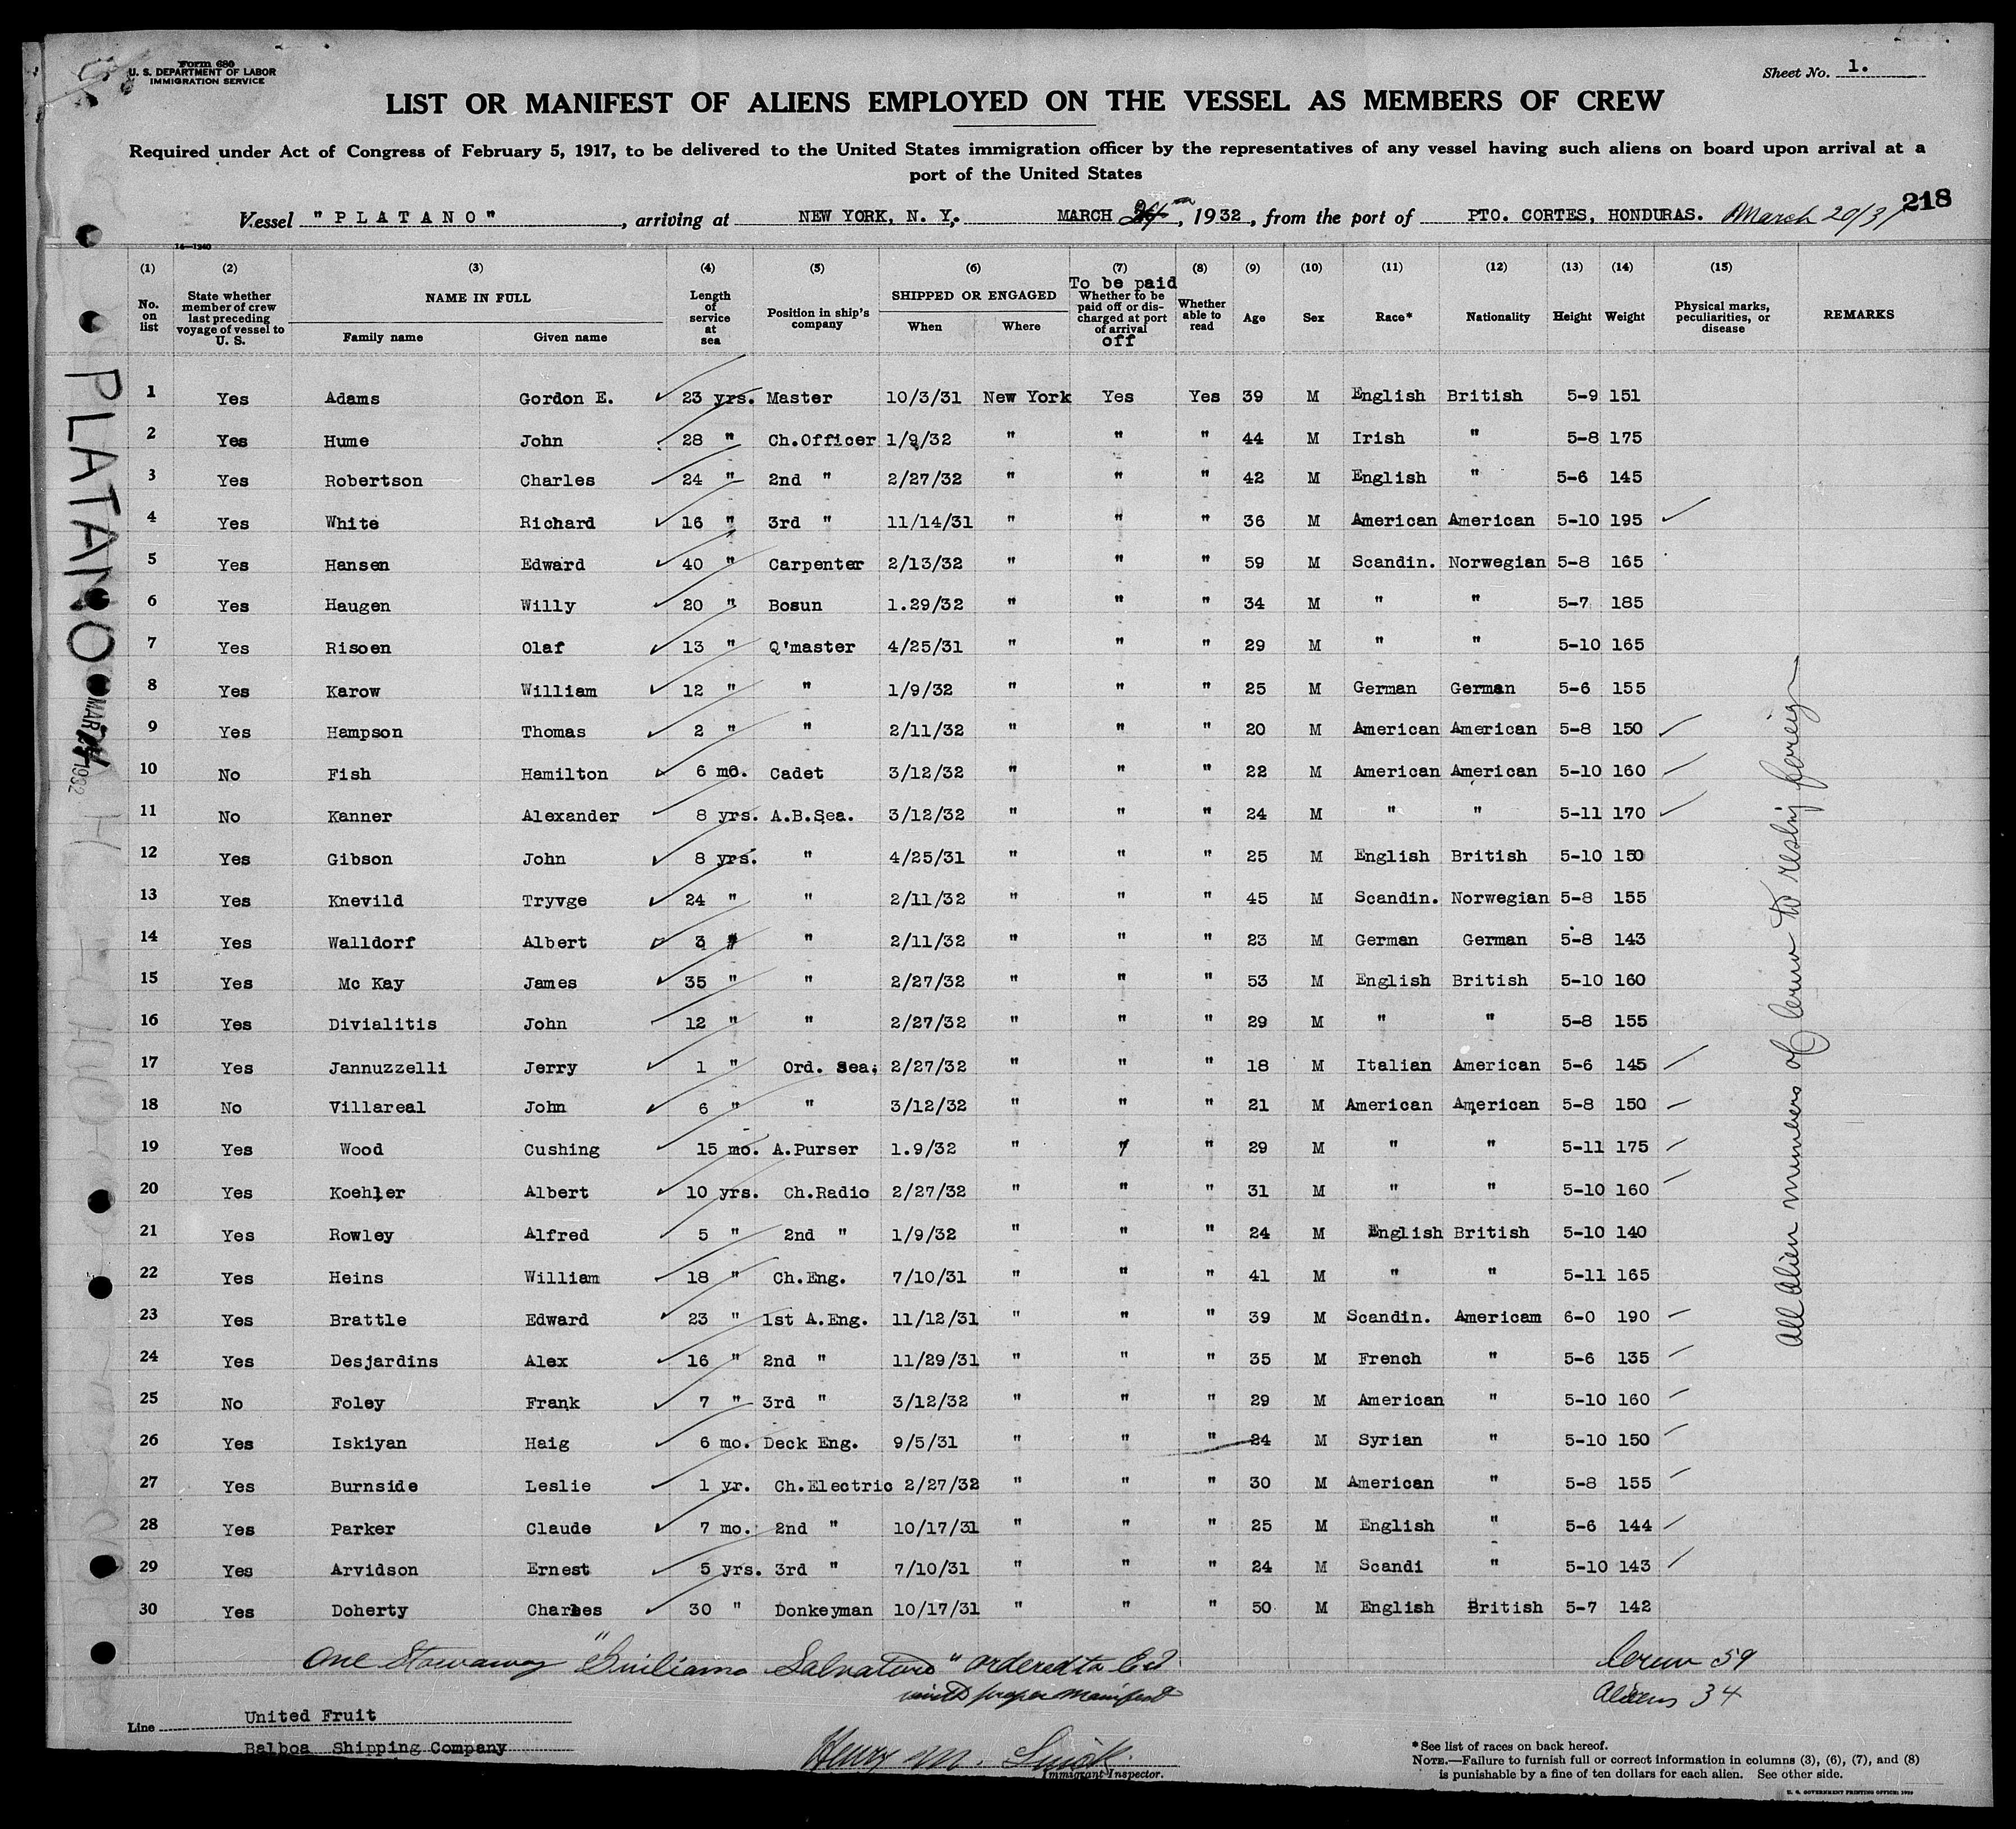 Form 680
U. S. DEPARTMENT OF LABOR
IMMIGRATION SERVICE
Sheet No. 1.
LIST OR MANIFEST OF ALIENS EMPLOYED ON THE VESSEL AS MEMBERS OF CREW
Required under Act of Congress of February 5, 1917, to be delivered to the United States immigration officer by the representatives of any vessel having such aliens on board upon arrival at a
port of the United States
218
Vessel "PLATANO", arriving at NEW YORK, N. Y., MARCH 24th, 1932, from the port of PTO. CORTES, HONDURAS. March 20/31
14—1240
(1) (2) (3) (4) (5) (6) (7) (8) (9) (10) (11) (12) (13) (14) (15)
No. on list | State whether member of crew last preceding voyage of vessel to U. S. | NAME IN FULL Family name Given name | Length of service at sea | Position in ship's company | SHIPPED OR ENGAGED When Where | To be paid Whether to be paid off or discharged at port of arrival off | Whether able to read | Age | Sex | Race* | Nationality | Height | Weight | Physical marks, peculiarities, or disease | REMARKS
1 Yes Adams Gordon E. 23 yrs. Master 10/3/31 New York Yes Yes 39 M English British 5-9 151
2 Yes Hume John 28 " Ch.Officer 1/9/32 " " " 44 M Irish " 5-8 175
3 Yes Robertson Charles 24 " 2nd " 2/27/32 " " " 42 M English " 5-6 145
4 Yes White Richard 16 " 3rd " 11/14/31 " " " 36 M American American 5-10 195
5 Yes Hansen Edward 40 " Carpenter 2/13/32 " " " 59 M Scandin. Norwegian 5-8 165
6 Yes Haugen Willy 20 " Bosun 1.29/32 " " " 34 M " " 5-7 185
7 Yes Risoen Olaf 13 " Q'master 4/25/31 " " " 29 M " " 5-10 165
8 Yes Karow William 12 " " 1/9/32 " " " 25 M German German 5-6 155
9 Yes Hampson Thomas 2 " " 2/11/32 " " " 20 M American American 5-8 150
10 No Fish Hamilton 6 mo. Cadet 3/12/32 " " " 22 M American American 5-10 160
11 No Kanner Alexander 8 yrs. A.B.Sea. 3/12/32 " " " 24 M " " 5-11 170
12 Yes Gibson John 8 yrs. " 4/25/31 " " " 25 M English British 5-10 150
13 Yes Knevild Tryvge 24 " " 2/11/32 " " " 45 M Scandin. Norwegian 5-8 155
14 Yes Walldorf Albert 3 " " 2/11/32 " " " 23 M German German 5-8 143
15 Yes Mc Kay James 35 " " 2/27/32 " " " 53 M English British 5-10 160
16 Yes Divialitis John 12 " " 2/27/32 " " " 29 M " " 5-8 155
17 Yes Jannuzzelli Jerry 1 " Ord. Sea. 2/27/32 " " " 18 M Italian American 5-6 145
18 No Villareal John 6 " " 3/12/32 " " " 21 M American American 5-8 150
19 Yes Wood Cushing 15 mo. A.Purser 1.9/32 " " " 29 M " " 5-11 175
20 Yes Koehler Albert 10 yrs. Ch.Radio 2/27/32 " " " 31 M " " 5-10 160
21 Yes Rowley Alfred 5 " 2nd " 1/9/32 " " " 24 M English British 5-10 140
22 Yes Heins William 18 " Ch.Eng. 7/10/31 " " " 41 M " " 5-11 165
23 Yes Brattle Edward 23 " 1st A.Eng. 11/12/31 " " " 39 M Scandin. Americam 6-0 190
24 Yes Desjardins Alex 16 " 2nd " 11/29/31 " " " 35 M French " 5-6 135
25 No Foley Frank 7 " 3rd " 3/12/32 " " " 29 M American " 5-10 160
26 Yes Iskiyan Haig 6 mo. Deck Eng. 9/5/31 " " " 24 M Syrian " 5-10 150
27 Yes Burnside Leslie 1 yr. Ch.Electric 2/27/32 " " " 30 M American " 5-8 155
28 Yes Parker Claude 7 mo. 2nd " 10/17/31 " " " 25 M English " 5-6 144
29 Yes Arvidson Ernest 5 yrs. 3rd " 7/10/31 " " " 24 M Scandi " 5-10 143
30 Yes Doherty Charles 30 " Donkeyman 10/17/31 " " " 50 M English British 5-7 142
All Alien members of Crew to reship foreign
PLATANO
MAR 24 1932
One Stowaway "Guiliamo Salvatore" ordered to
with proper manifest
Crew 59
Aliens 34
Line United Fruit
Balboa Shipping Company
Henry M.
Immigrant Inspector.
*See list of races on back hereof.
NOTE.—Failure to furnish full or correct information in columns (3), (6), (7), and (8)
is punishable by a fine of ten dollars for each alien. See other side.